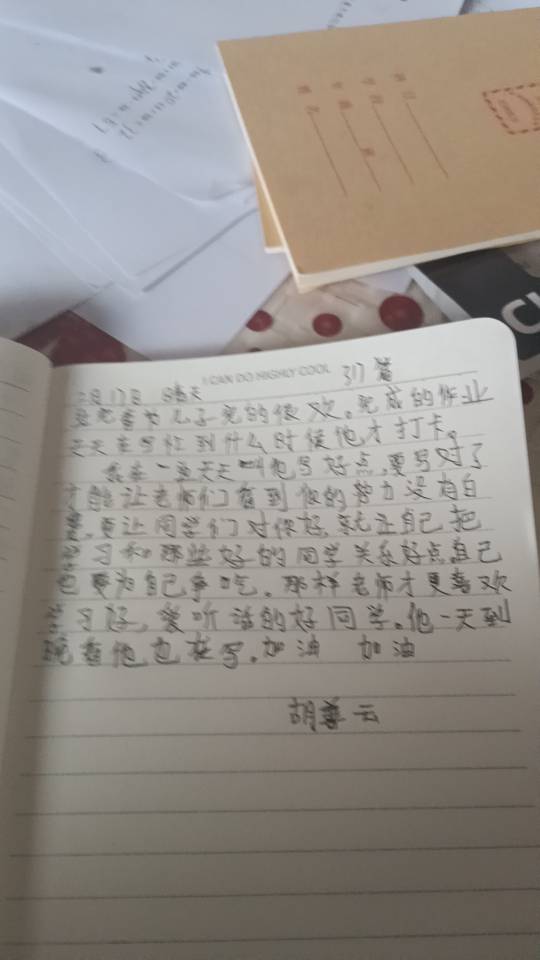 I CAN DO HIGHLY COOL
317篇
月17日 晴天
儿子完的很欢。完成的作业
天天在写作到什么时候他才打卡。
我在一旁天天叫他写好点,要写对了
才能让老师们看到你的努力没有白
费,更让同学们对你好,就让自己把
学习和那些好的同学关系好点自己
也要为自己争吃。那样老师才更喜欢
学习好,爱听话的好同学。他一天到
晚看他也在写。加油 加油
胡 云